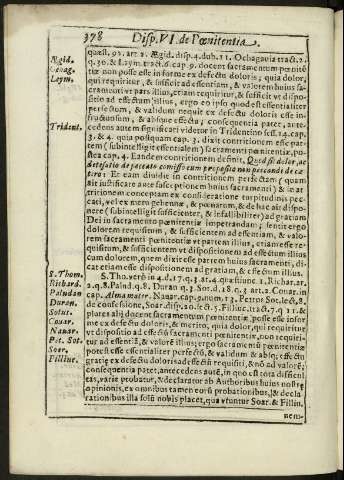 378 Disp. VI. de Pœnitentia.
quæst. 92. art 2. Ægid. disp. 4. dub. 11. Ochagavia tract. 2.
Ægid.
q. 30. & Laym. tract. 6. cap. 9. docent sacramentum pœnitẽ
Ochag.
tiæ non posse esse informe ex defectu doloris; quia dolor,
Laym.
qui requiritur, & sufficit ad essentiam, & valorem huius sa-
cramenti vt pars illius, etiam requiritur, & sufficit vt dispo-
sitio ad effectum illius, ergo eo ipso quod est essentialiter
perfectum, & validum nequit ex defectu doloris esse in-
fructuosum, & absque effectu; consequentia patet, antece-
dens autem significari videtur in Tridentino sess. 14. cap.
Trident.
3. & 4. quia postquam cap. 3. dixit contritionem esse par-
tem (subintelligit essentialem) Sacramenti pœnitentiæ, po-
stea cap. 4. Eandem contritionem definit, Quod sit dolor, ac
detestatio de peccato commisso cum proposito non peccandi de cæ-
tero: Et eam diuidit in contritionem perfectam (quam
ait iustificare ante susceptionem huius sacramenti) & in at-
tritionem conceptam ex consideratione turpitudinis pec-
cati, vel ex metu gehennæ, & pœnarum, & de hac ait dispo-
nere (subintelligit sufficienter, & infallibiliter) ad gratiam
Dei in sacramento pœnitentiæ impetrandam; sentit ergo
dolorem requisitum, & sufficientem ad essentiam, & valo-
rem sacramenti pœnitentiæ vt partem illius, etiam esse re-
quisitum, & sufficientem vt dispositionem ad effectum illius
cum dolorem, quem dixit esse partem huius sacramenti, di-
cat etiam esse dispositionem ad gratiam, & effectum illius.
S. Tho. verò in 4. d. 17. q. 3. art. 4. quæstiunc. 1. Richar. ar.
S. Thom.
2. q. 8. Palud. q. 8. Duran q. 13. Sot. d. 18. q. 3. art. 2. Couar. in
Richard.
cap. Alma mater. Nauar. cap. 9. num. 13. Petrus Sot. lect. 8.
Paludan
de confessione, Soar. disp. 20. sect. 5. Filliuc. tract. 7. q. 11. &
Duran.
plures alij docent sacramentum pœnitentiæ posse esse infor
Sotus.
me ex defectu doloris, & meritò, quia dolor, qui requiritur
Couar.
vt dispositio ad effectũ sacramenti pœnitentiæ, non requiri-
Nauar.
tur ad essentiã, & valorẽ illius; ergo sacramentũ pœnitentiæ
Pet. Sot.
potest esse essentialiter perfectũ, & validum & absq; effectu
Soar.
gratiæ ex defectu doloris ad effectũ requisiti, & nõ ad valorẽ;
Filliuc.
consequentia patet, antecedens autẽ, in quo est tota difficul
tas, variè probatur, & declaratur ab Authoribus huius nostræ
opinionis, ex omnibus tamen eorũ probationibus, & decla
rationibus illa solũ nobis placet, qua vtuntur Soar. & Filliu.
nem-